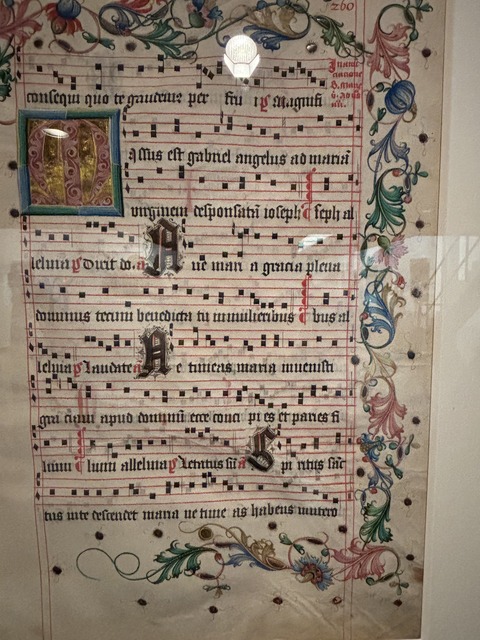 260
consequi quo te gaudeiis per fru ip̄ Magnifi
M issus est gabriel angelus ad mariā
virginem desponsatā ioseph seph al
leluia p̄ Dixit do. a A ue mari a gracia plena
dominus tecum benedicta tu in mulieribus bus al
leluia p̄ Laudate a N e timeas maria inuenisti
gra ciam apud dominū ecce conci pi es et paries fi
lium lium alleluia p̄ Letatus sū a S pi ritus sāc
tus in te descendet maria ne time as habens in utero